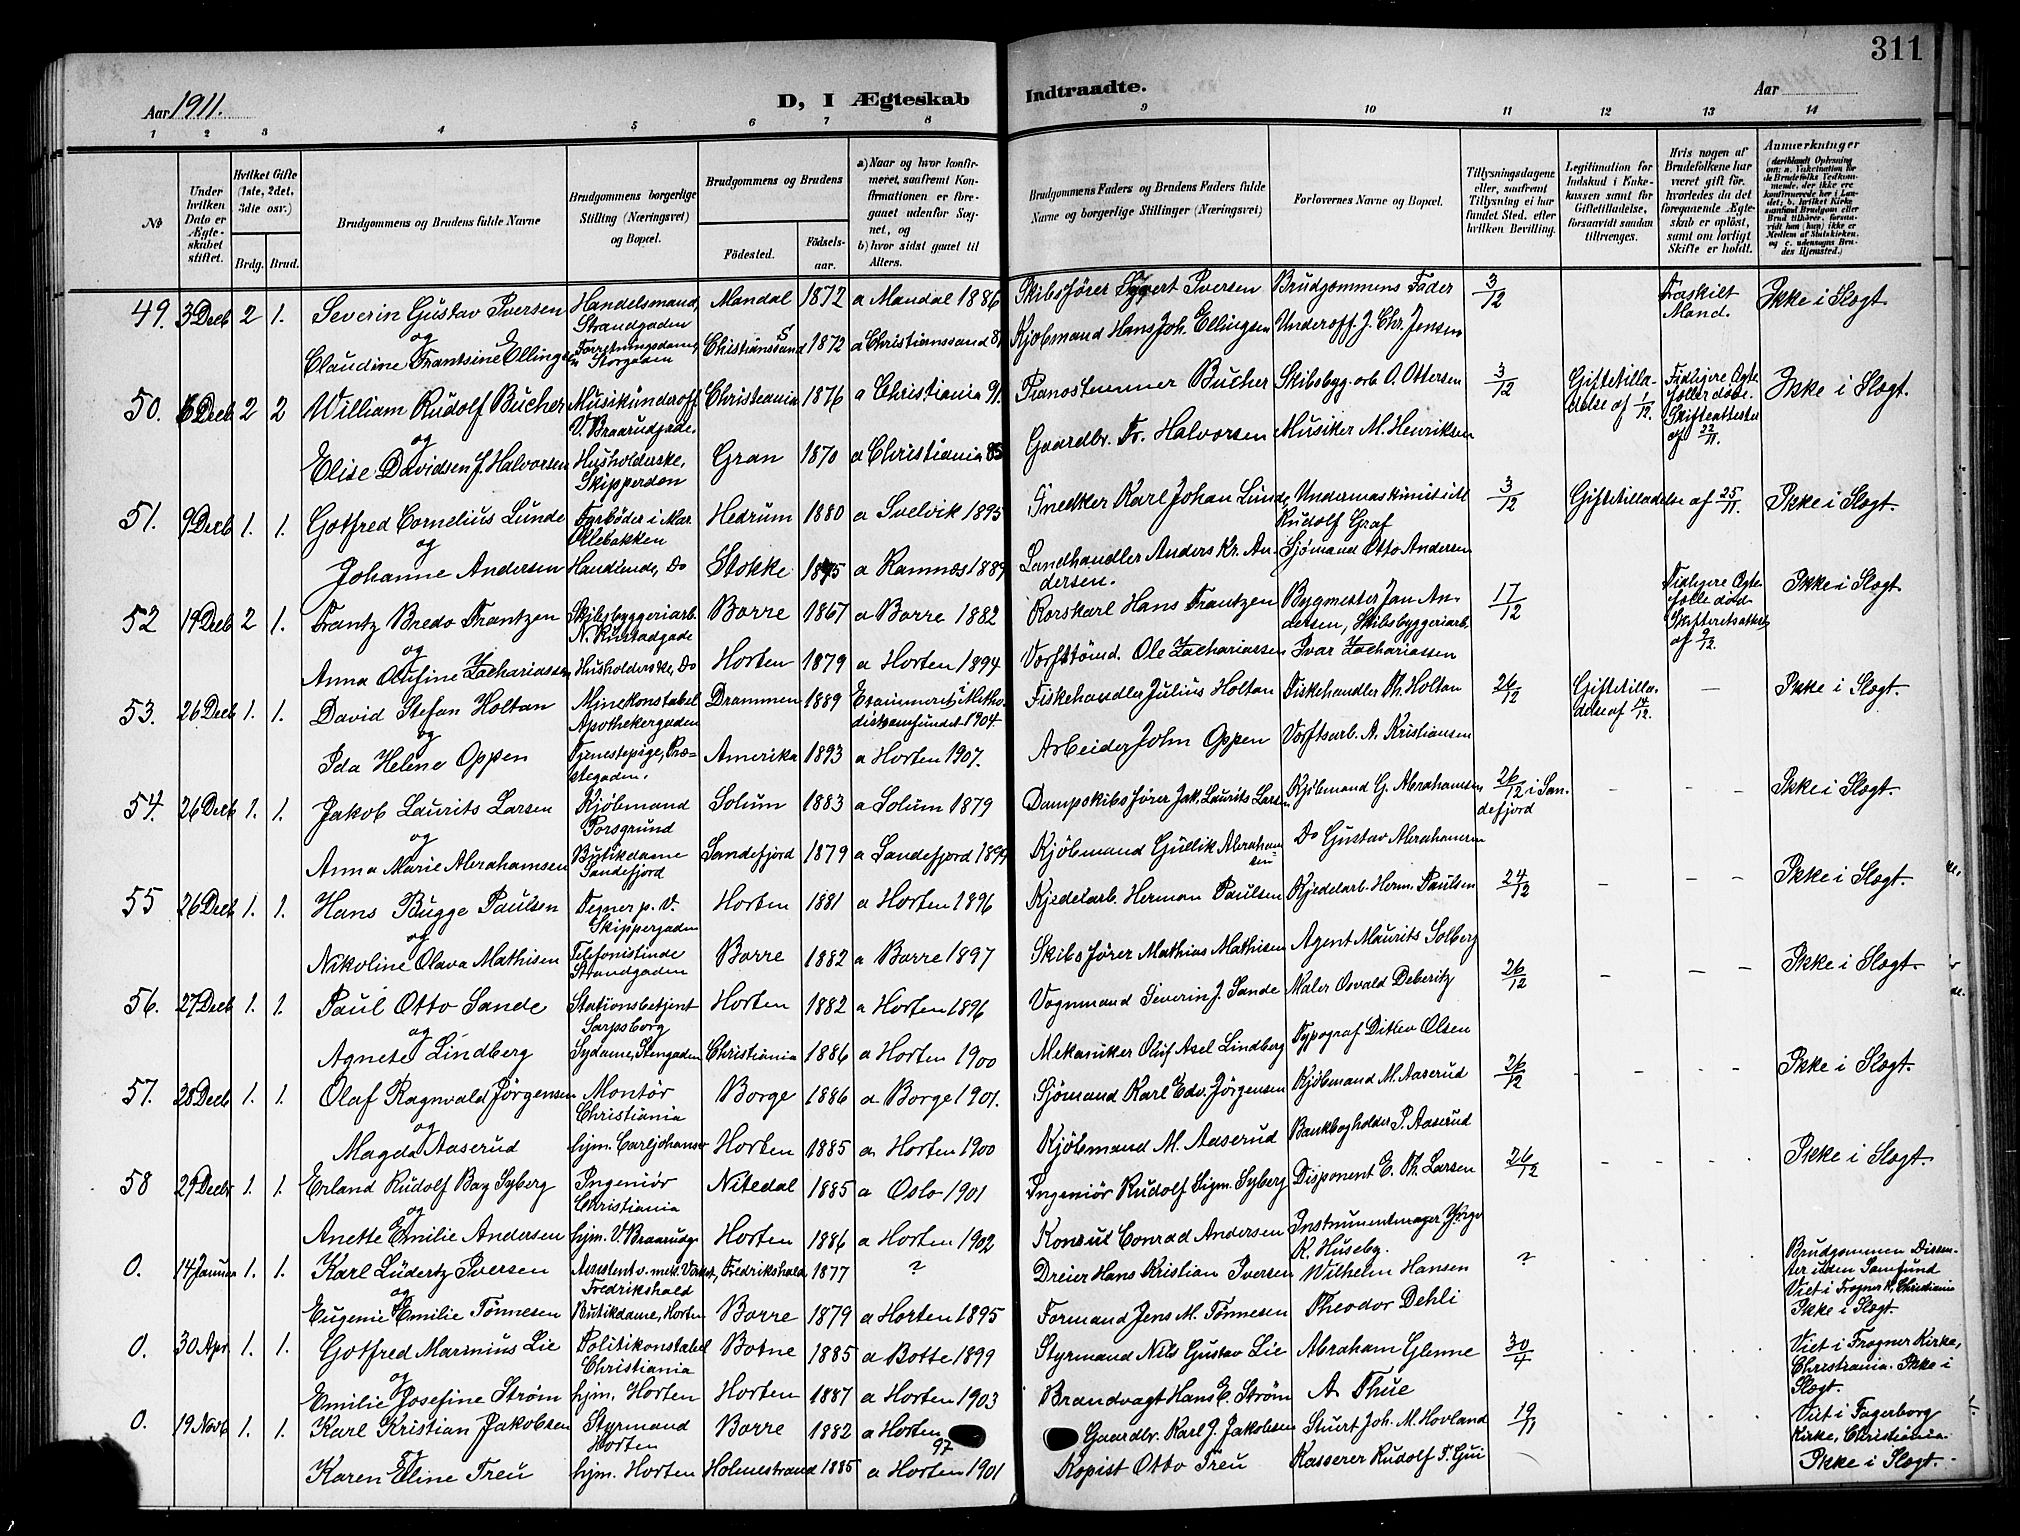 311
Aar 1911.
D, I Ægteskab Indtraadte.
Aar
1 2 3 4 5 6 7 8 9 10 11 12 13 14
No
Under hvilken Dato er Ægteskabet stiftet.
Hvilket Gifte (1ste, 2det, 3die osv.)
Brdg. Brud.
Brudgommens og Brudens fulde Navne
Brudgommens borgerlige Stilling (Næringsvei) og Bopæl.
Brudgommens og Brudens
Fødested.
Fødselsaar.
a) Naar og hvor konfirmeret, saafremt Konfirmationen er foregaaet udenfor Sognet, og
b) hvor sidst gaaet til Alters.
Brudgommens Faders og Brudens Faders fulde Navne og borgerlige Stillinger (Næringsvei)
Forlovernes Navne og Bopæl.
Tillysningsdagene eller, saafremt Tillysning ei har fundet Sted, efter hvilken Bevilling.
Legitimation for Indskud i Enkekassen samt for Giftetilladelse, forsaavidt saadan tiltrænges.
Hvis nogen af Brudefolkene har været gift før, hvorledes du det foregaaende Ægteskab er opløst, samt om lovligt Skifte er holdt.
Anmerkninger
49. 3 Decb 2 1. Severin Gustav Iversen Handelsmand, Strandgaden Mandal 1872 a Mandal 1886 Skibsfører Syvert Iversen Brudgommens Fader 3/12 Fraskilt Mand. Ikke i Slægt.
og
Claudine Frantsine Ellingsen Forretningsdame, Storgaden Christianssand 1872 a Christianssand Kjøbmand Hans Joh. Ellingsen Underoff. J. Chr. Jensen
50. 6 Decb 2 2 William Rudolf Bucher Musikunderoff. V. Braarudgade. Christiania 1876 a Christiania 91. Pianostemmer Bucher Skibsbyg. arb. O. Ottersen 3/12 Giftetilladelse af 1/12. Tidligere Ægtefæller døde. Skifteattester af 22/11. Ikke i Slægt.
og
Elise Davidsen f. Halvorsen Husholderske, Skippergden Gran 1870 a Christiania 85 Gaardbr. Fr. Halvorsen Musiker M. Henriksen
51. 9 Decb 1. 1. Gotfred Cornelius Lunde Fyrbøder i Mar. Ollebakken Hedrum 1880 a Svelvik 1895 Snedker Karl Johan Lunde Undermaskinist Rudolf Graf 3/12 Giftetilladelse af 25/11. Ikke i Slægt.
og
Johanne Andersen Handlende, Do Stokke 1875 a Ramnæs 1889 Landhandler Anders Kr. Andersen. Sjømand Otto Andersen
52 19 Decb 2 1. Frantz Bredo Frantzen Skibsbyggeriarb. N. Rustadgade Borre 1867 a Borre 1882 Rorskarl Hans Frantzen Bygmester Jan Andersen, Skibsbyggeriarb. 17/12 Tidligere Ægtefælle død Skifteretsattest af 9/12. Ikke i Slægt.
og
Anna Olufine Zachariassen Husholderske, Do Horten 1879 a Horten 1894 Værftstømd. Ole Zachariassen Ivar Zachariassen
53. 26 Decb 1. 1. David Stefan Holtan Minekonstabel Apothekergaden Drammen 1889 Examineret i Methodistsamfundet 1904. Fiskehandler Julius Holtan Fiskehandler Th. Holtan 26/12 Giftetilladelse af 14/12. — Ikke i Slægt.
og
Ida Helene Oppen Tjenestepige, Præstegaden. Amerika 1893 a Horten 1907. Arbeider John Oppen Værftsarb. A. Kristiansen
54. 26 Decb 1. 1. Jakob Laurits Larsen Kjøbmand Porsgrund Solum 1883 a Solum 1879 Dampskibsfører Jak. Laurits Larsen Kjøbmand G. Abrahamsen 26/12 i Sandefjord - - - Ikke i Slægt.
og
Anna Marie Abrahamsen Butikdame Sandefjord Sandefjord 1879 a Sandefjord 1894 Kjøbmand Gullik Abrahamsen Do Gustav Abrahamsen
55 26 Decb 1. 1. Hans Bugge Paulsen Tegner p. V. Skippergaden Horten 1881 a Horten 1896 Kjedelarb. Herman Paulsen Kjedelarb. Herm. Paulsen 24/12 - - - Ikke i Slægt.
og
Nikoline Olava Mathisen Telefonistinde Strandgaden Borre 1882 a Borre 1897 Skibsfører Mathias Mathisen Agent Maurits Solberg
56. 27 Decb 1. 1. Paul Otto Sande Stationsbetjent Sarpsborg Horten 1882 a Horten 1896 Vognmand Severin J. Sande Maler Osvald Deberitz 26/12 - - - Ikke i Slægt.
og
Agnete Lindberg Sydame, Stengaden Christiania 1886 a Horten 1900 Mekaniker Oluf Axel Lindberg Typograf Ditlev Olsen
57. 28 Decb 1. 1. Olaf Ragnvald Jørgensen Montør Christiania Borge 1886 a Borge 1901. Sjømand Karl Edv. Jørgensen Kjøbmand M. Aaserud 26/12 - - - - Ikke i Slægt.
og
Magda Aaserud hjm. Carljohansv Horten 1885 a Horten 1900 Kjøbmand M. Aaserud Bankbogholder P. Aaserud
58 29 Decbr 1. 1. Erland Rudolf Bay Syberg Ingeniør Christiania Nitedal 1885 a Oslo 1901 Ingeniør Rudolf Sigm. Syberg Disponent E. Th. Larsen 26/12 - - - - Ikke i Slægt.
og
Anette Emilie Andersen hjm. V. Braarudg. Horten 1886 a Horten 1902 Konsul Conrad Andersen Instrumentmager K. Huseby.
0. 14 Januar 1. 1. Karl Lüdertz Iversen Assistent v. mek. Verkst, Fredrikshald Fredrikshald 1877 ? Dreier Hans Kristian Iversen Wilhelm Hansen ? Brudgommen Dissenter uden Samfund Viet i Frogner K. Christiania Ikke i Slægt.
og
Eugenie Emilie Tønnesen Butikdame, Horten Borre 1879 a Horten 1895 Formand Jens M. Tønnesen Theodor Dehli
0. 30 Apr 1. 1. Gotfred Marinius Lie Politikonstabel Christiania Botne 1885 a Botte 1899 Styrmand Nils Gustav Lie Abraham Glenne 30/4 Viet i Frogner Kirke, Christiania. Ikke i Slægt.
og
Emilie Josefine Strøm hjm. Horten Horten 1887 a Horten 1903 Brandvagt Hans E. Strøm A. Thue
0. 19 Novb 1. 1. Karl Kristian Jakobsen Styrmand Horten Borre 1882 a Horten 97 Gaardbr. Karl J. Jakobsen Stuert Joh. M. Hovland 19/11 Viet i Fagerborg Kirke, Christiania. Ikke i Slægt.
og
Karen Eline Treu hjm. Horten Holmestrand 1885 a Horten 1901 Kopist Otto Treu Kasserer Rudolf T. Gjui